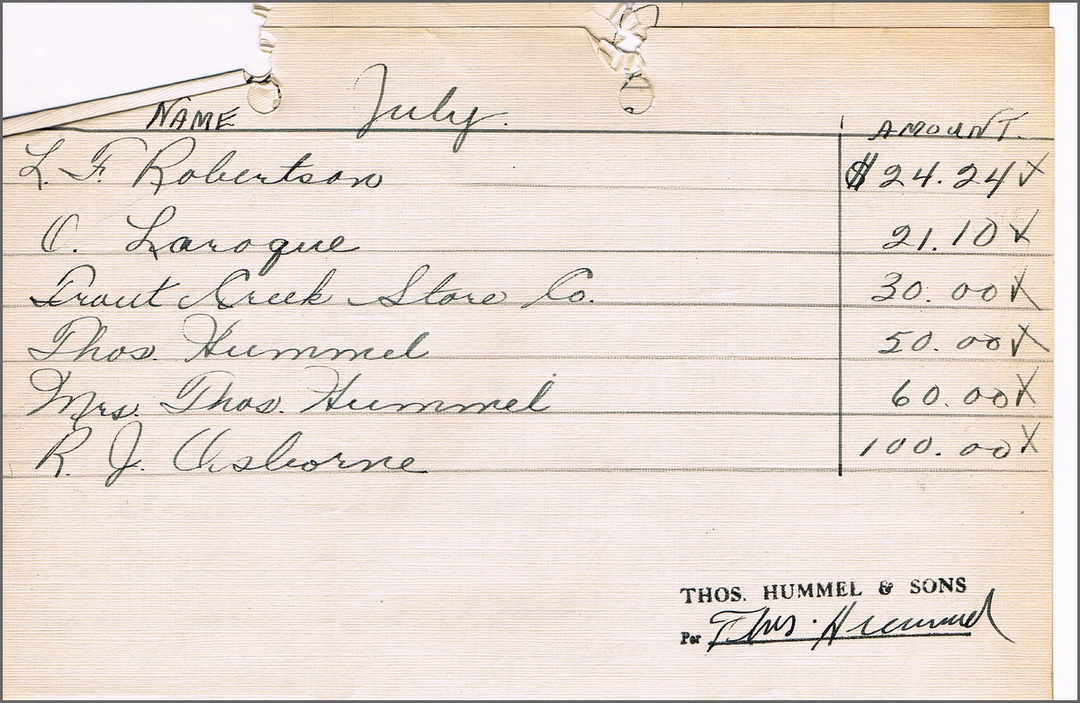 NAME July. AMOUNT.
L. F. Robertson $24.24
O. Laroque 21.10
Trout Creek Store Co. 30.00
Thos. Hummel 50.00
Mrs. Thos. Hummel 60.00
R. J. Osborne 100.00
THOS. HUMMEL & SONS
Per Thos. Hummel